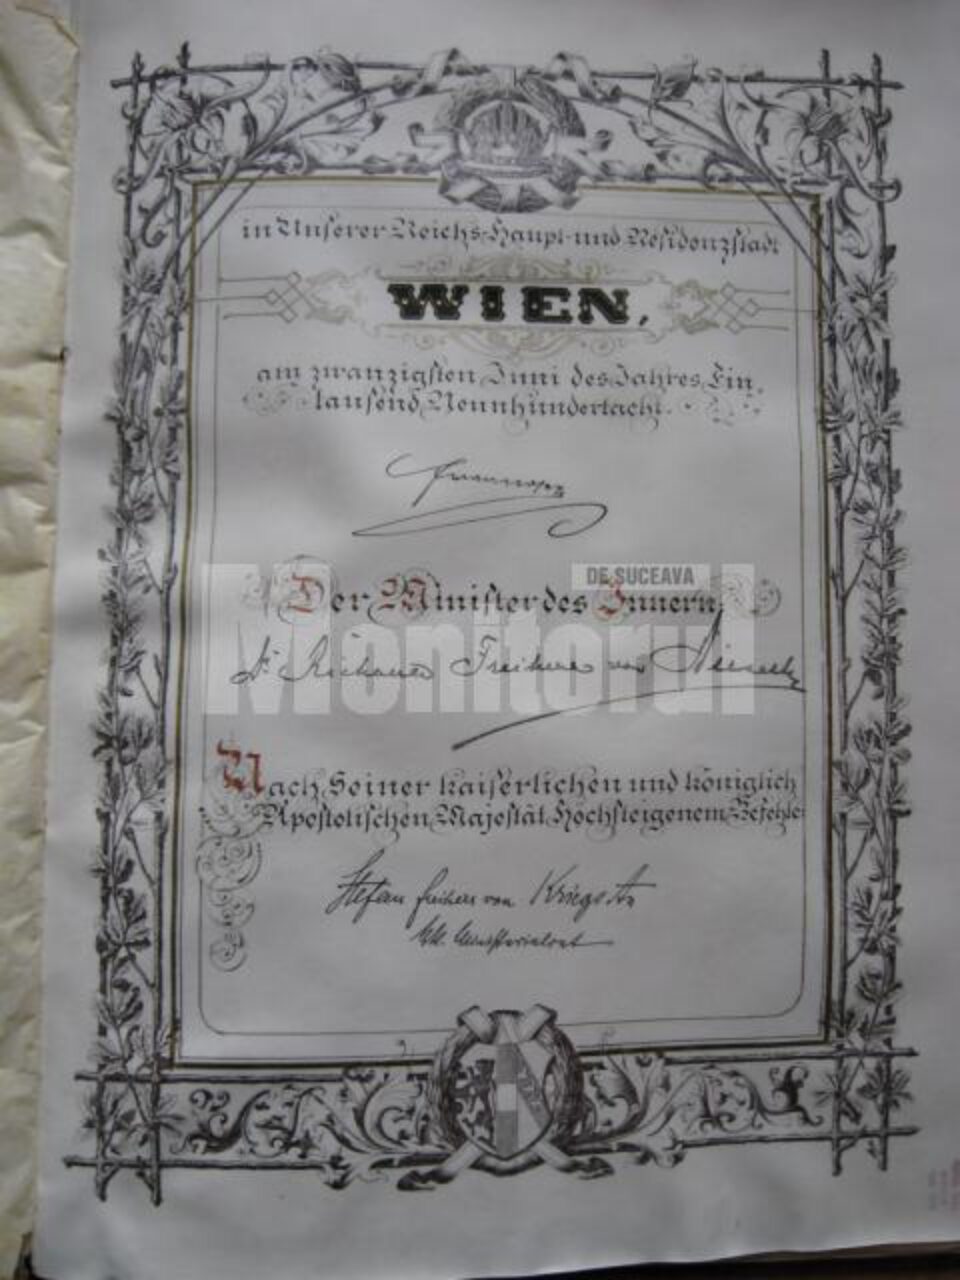 in Unserer Reichs-Haupt- und Residenzstadt
WIEN,
am zwanzigsten Juni des Jahres Ein-
tausend Neunhundertacht.
DE SUCEAVA
Monitorul
Der Minister des Innern
Dr Richard Freiherr von
Nach Seiner kaiserlichen und königlich
Apostolischen Majestät Höchsteigenem Befehle:
Stefan Freiherr von
k.k. Ministerialrat